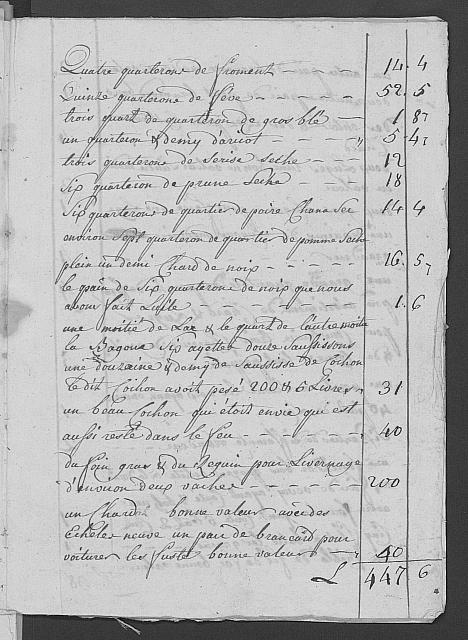 Quatre quarterons de froment - - 14. 4
Quinze quarterons de feve - - - - - 52. 5
trois quart de quarteron de gros blé - 1. 8
un quarteron & demy d'aricot - - - 5. 4
trois quarterons de Serise Seche - - - 12
Six quarteron de prune Seche - - - 18
Six quarterons de quartier de poire 14. 4
environ Sept quarteron de quartier de pomme Seche
plein un demi Chard de noix - - - - 16. 5
le de Six quarterons de noix que nous
avons fait - - - - - - 1. 6
une moitié de & le quart de l'autre moitié
la Six douze Saussissons
une douzaine & demy de Saussisse de Cochon
le dit Cochon avoit pesé 200 & 5 Livres 31
un beau Cochon qui étoit envie qui est
aussi resté dans le feu - - - - - 40
du foin gras & du Reguin pour Livernage
d'environ deux vaches - - - - - - 200
un Chard bonne valeur avec des
Echeles neuve un pair de brancard pour
voiturer les fustes bonne valeur - 40
L 447 6